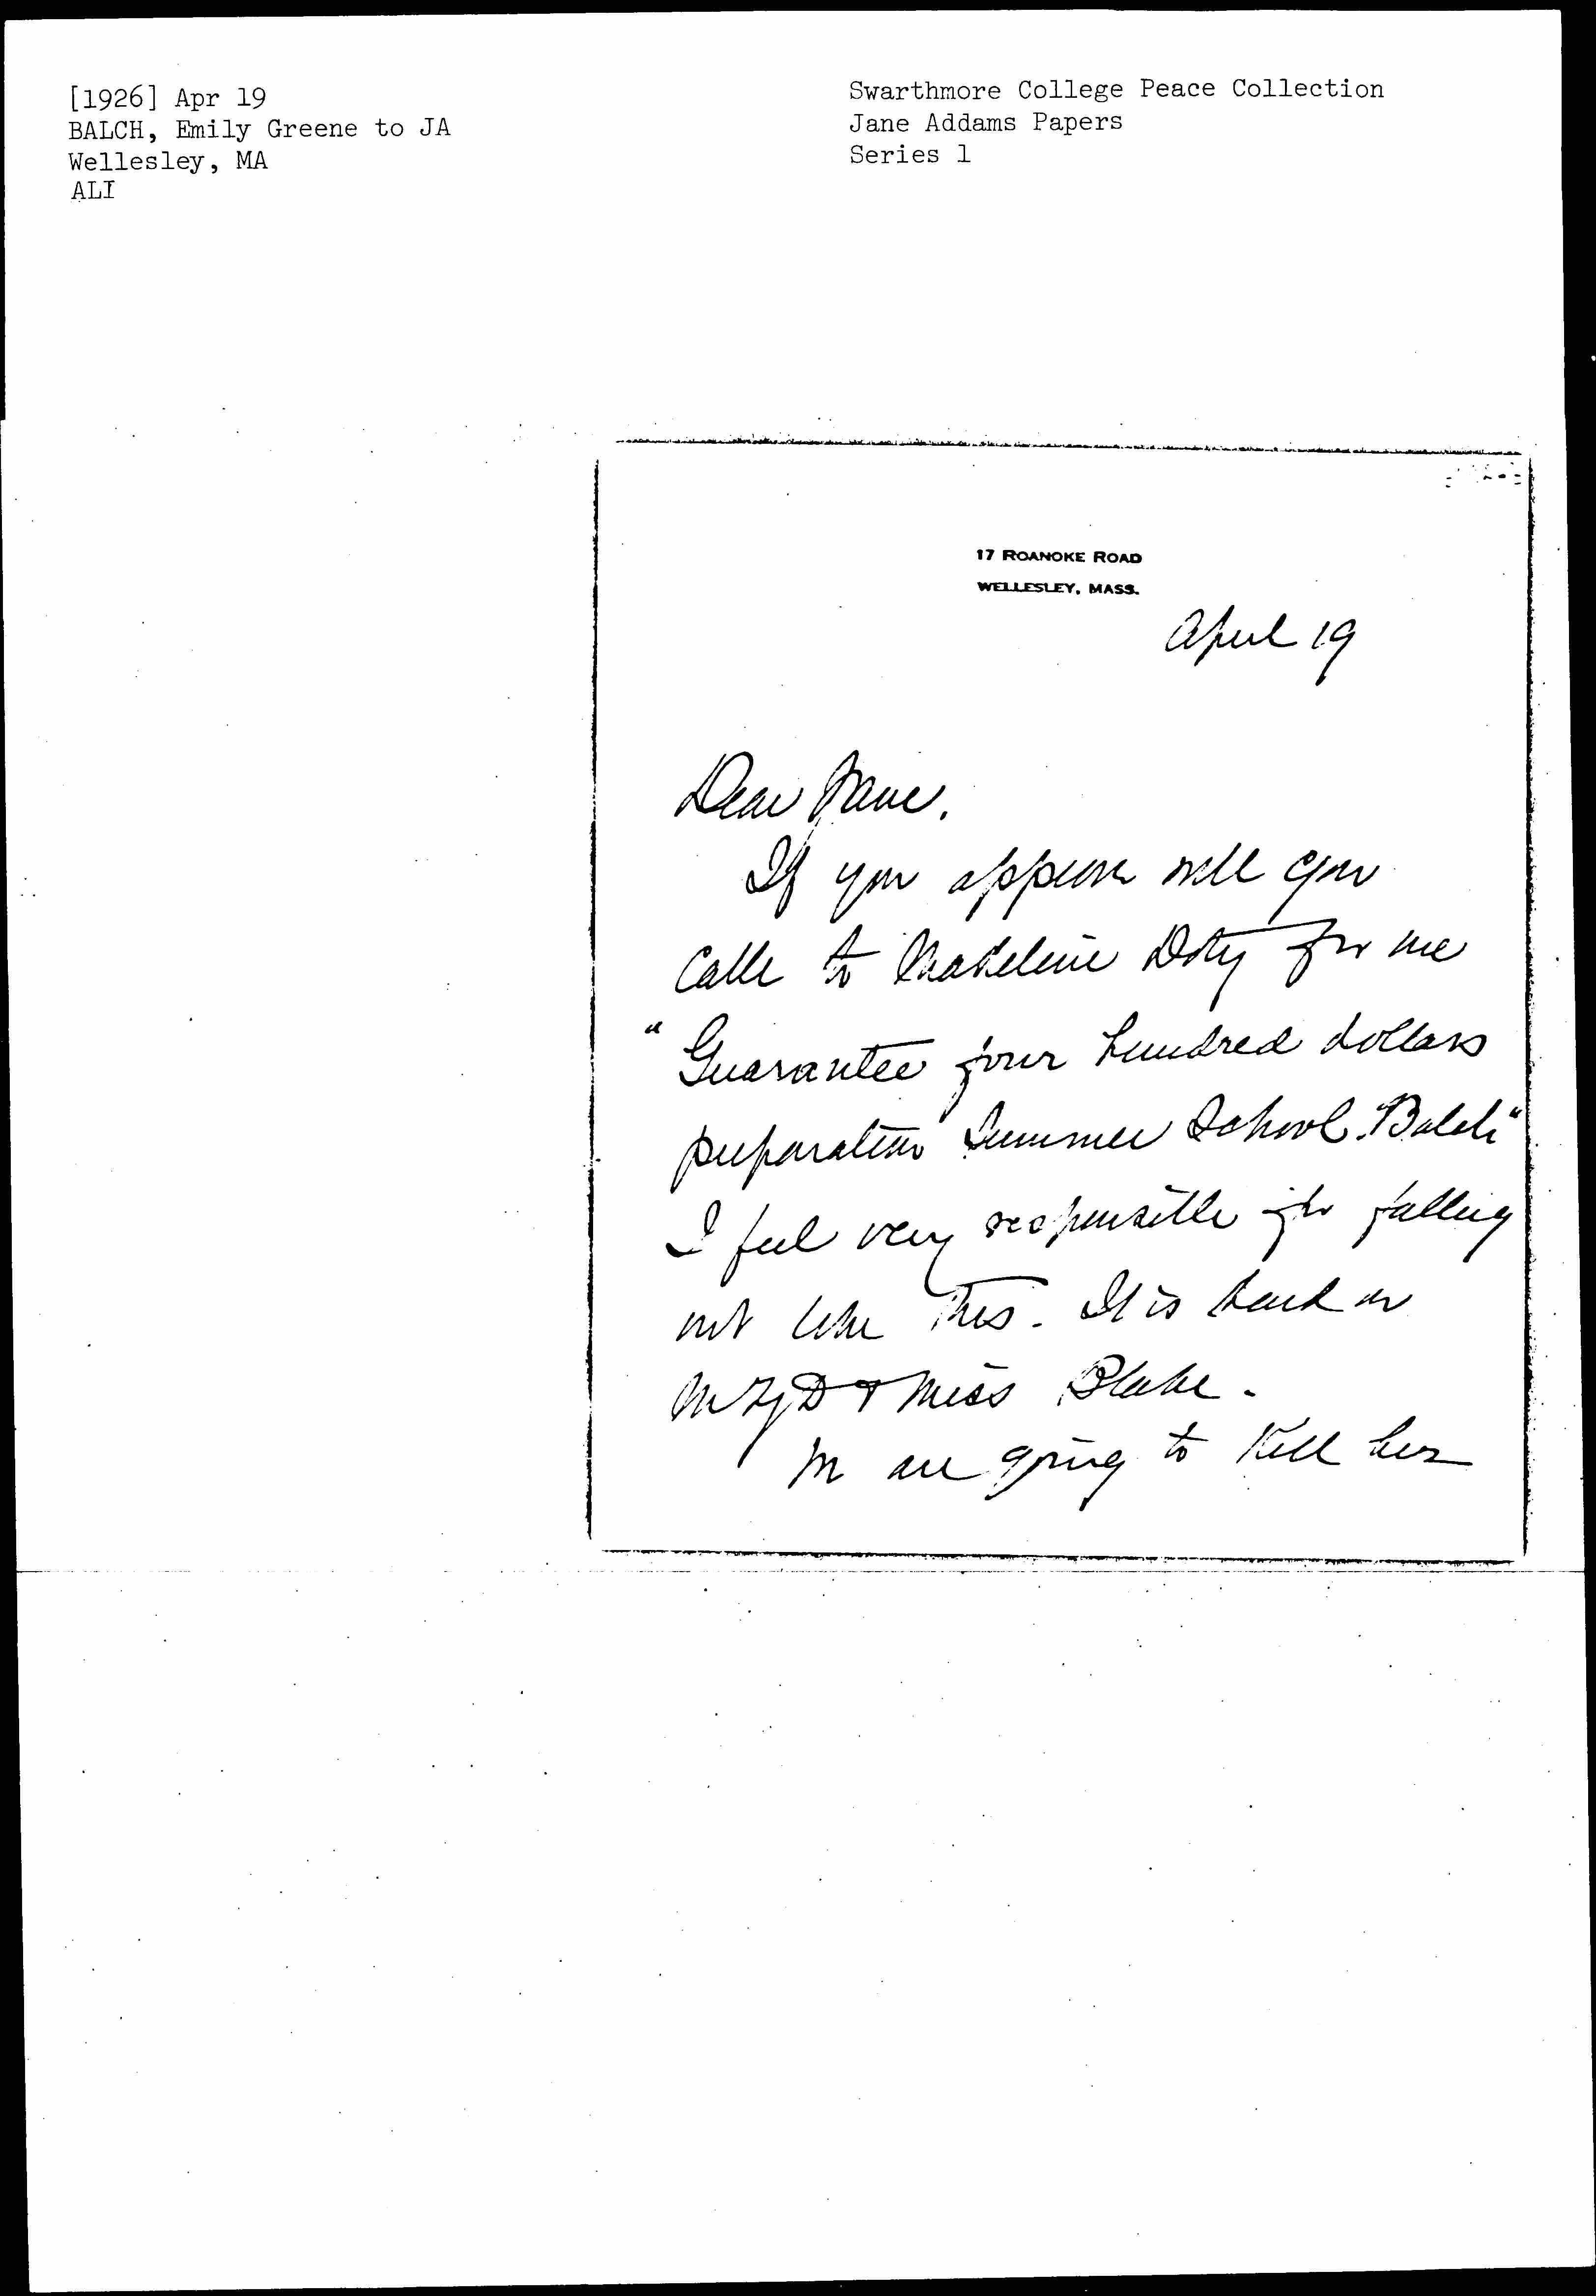 [1926] Apr 19
BALCH, Emily Greene to JA
Wellesley, MA
ALI
Swarthmore College Peace Collection
Jane Addams Papers
Series 1
17 ROANOKE ROAD
WELLESLEY, MASS.
April 19
Dear Jane.
If you approve will you
cable to Madeleine Doty for me
"Guarantee four hundred dollars
preparation Summer School. Balch"
I feel very responsible for falling
out like this. It is hard on
MZD & Miss Blake.
We are going to kill her